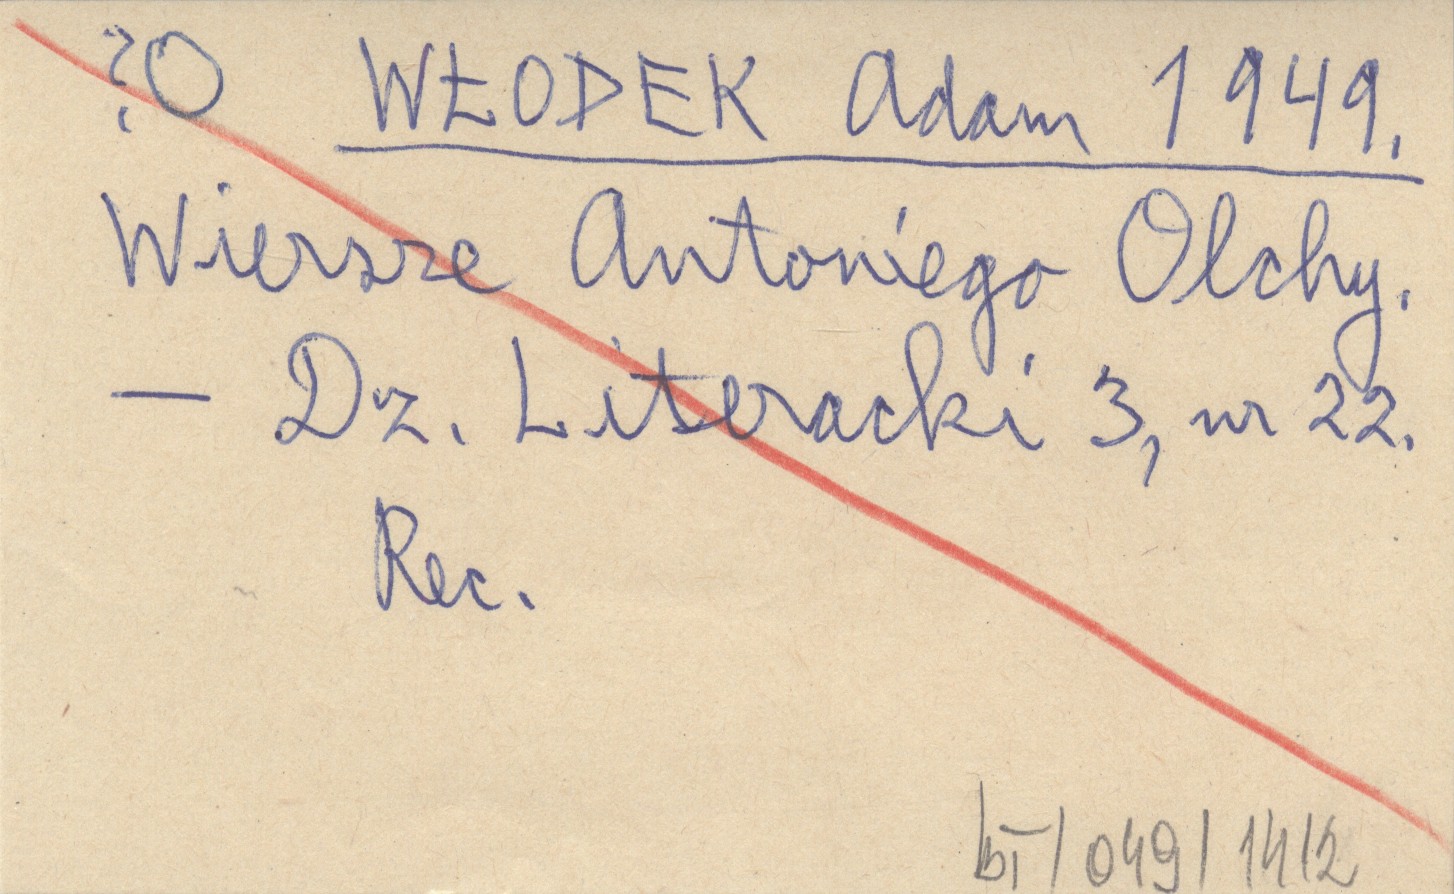 ?O WŁODEK Adam 1949.
Wiersze Antoniego Olchy.
— Dz. Literacki 3, nr 22.
Rec.
bi / 049 / 1412